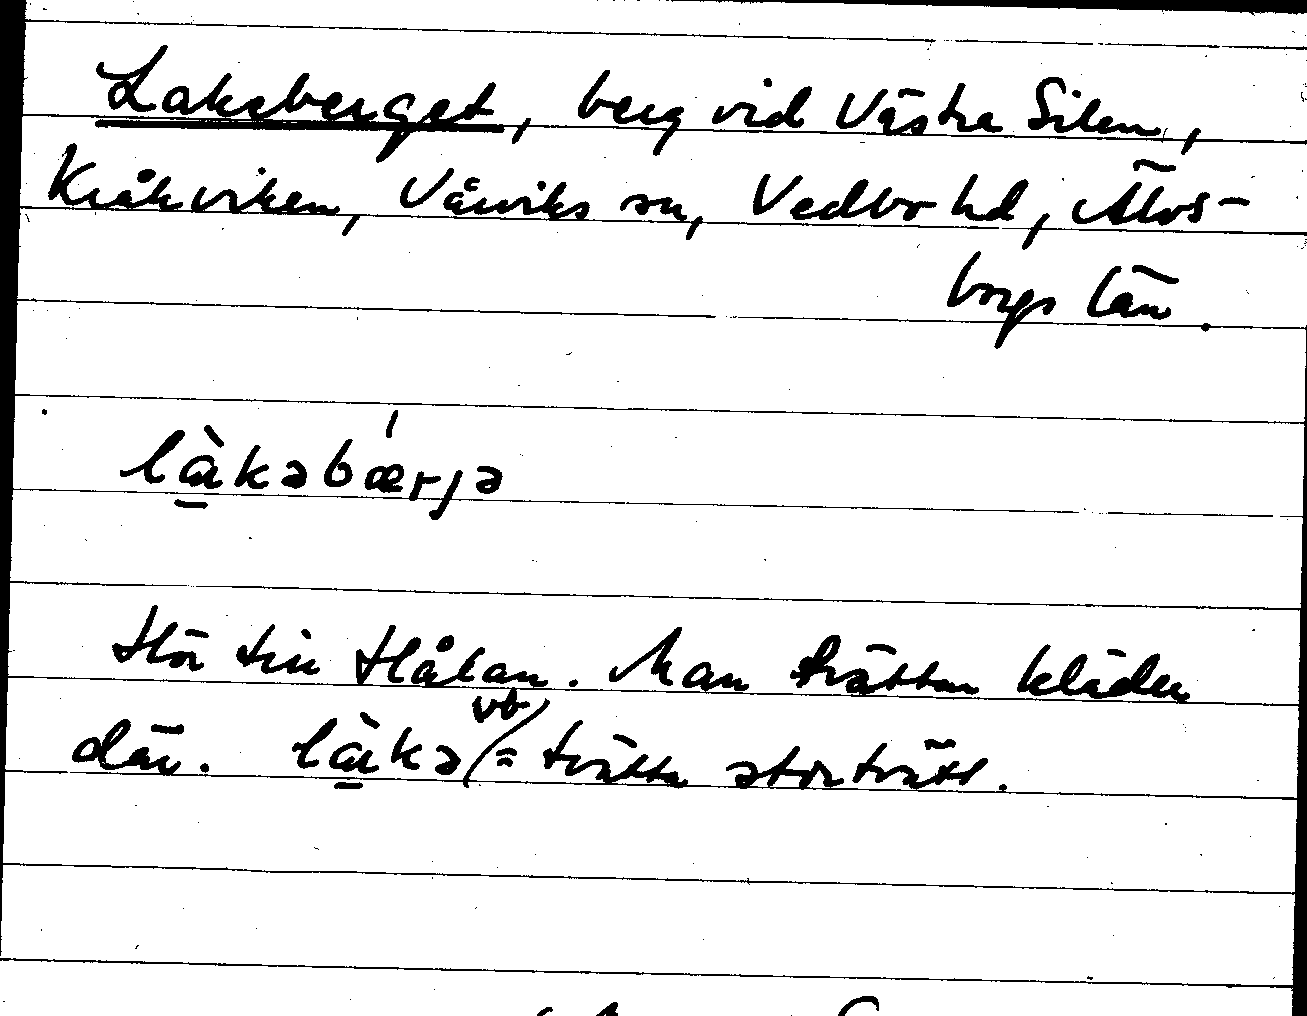 Lakeberget, berg vid Västra Silen,
Kråkviken, Vårviks sn, Vedbo hd, Älvs-
borgs län.
làkəbǽrjə
Hör till Hålan. Man tvättar kläder
där. làkə vb = tvätta stortvätt.